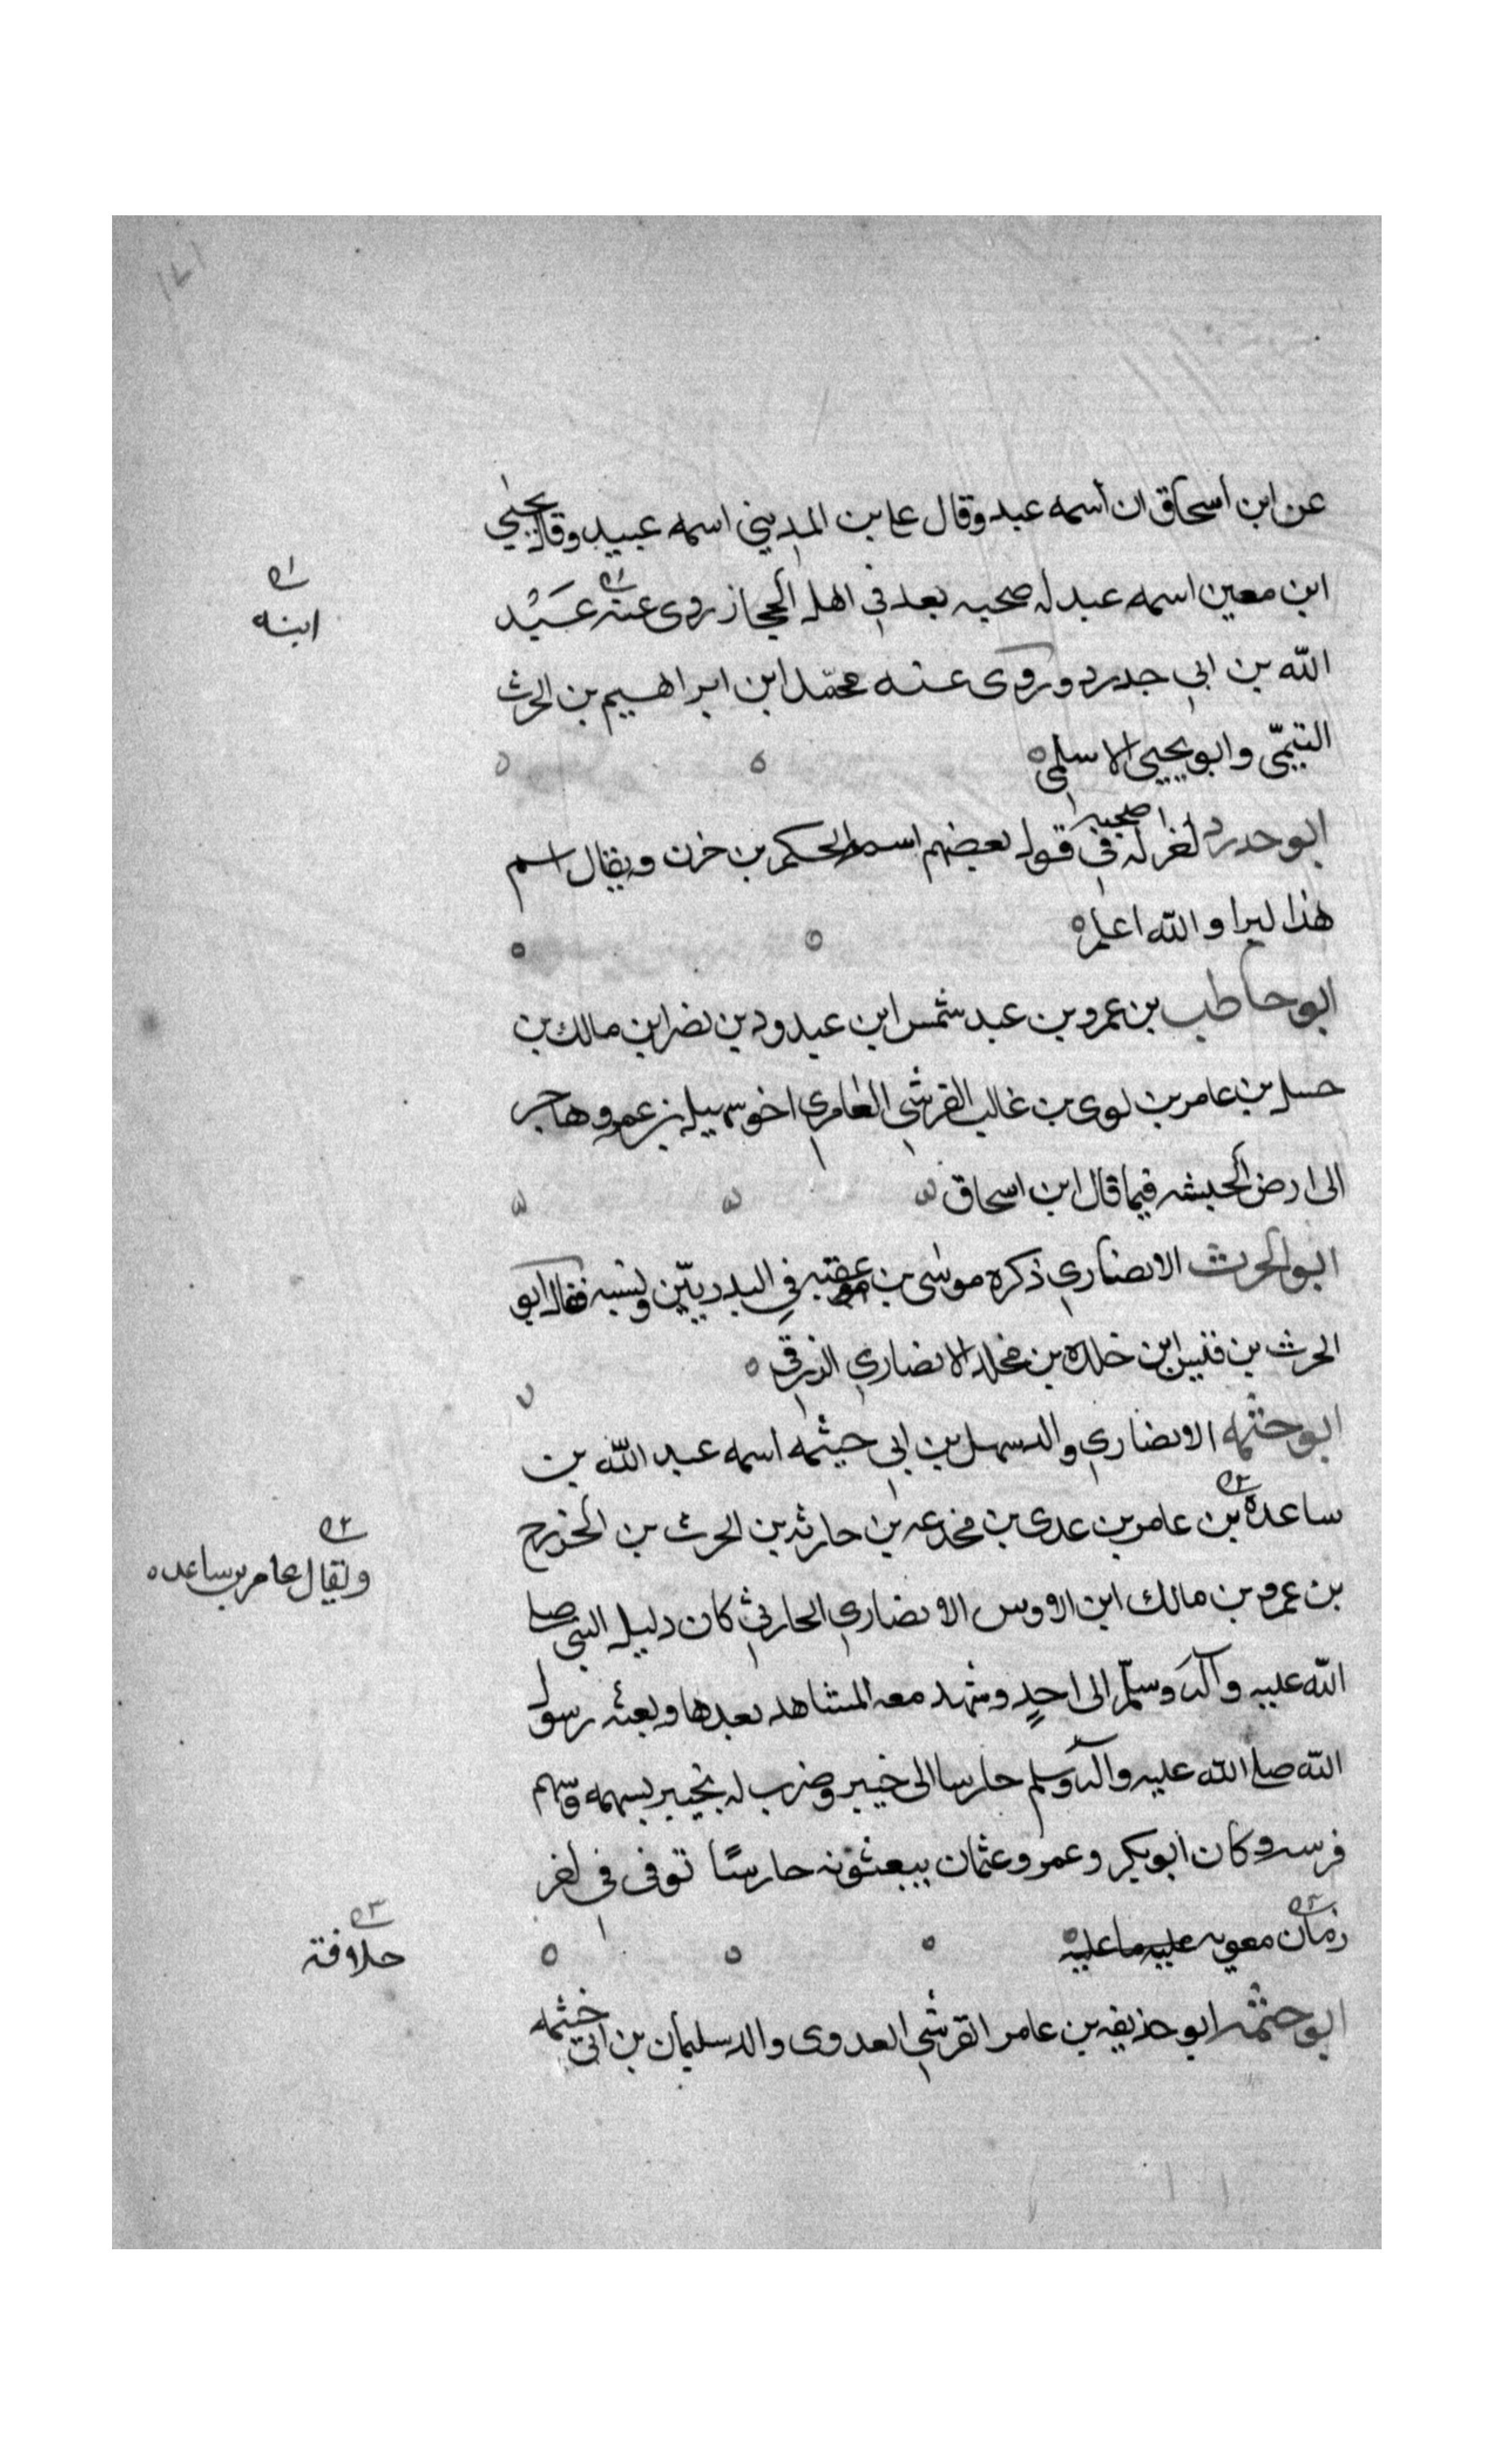 عن ابن اسحاق ان اسمه عبد وقال على بن المديني اسمه عبيد وقال يحيى
ابن معين اسمه عبد له صحبه يعد في اهل الحجاز روى عنه عبيد
ابنه
الله بن ابي حدرد وروى عنه محمّد ابن ابراهيم بن الحرث
التيمّى وابو يحيى الاسلمى
ابو حدرد اخر له صحبه في قول بعضهم اسمه الحكم بن حزن ويقال اسم
هذا ليرا والله اعلم
ابو حاطب بن عمرو بن عبد شمس ابن عبدود بن نصر ابن مالك بن
حسل بن عامر بن لوى بن غالب القرشي العامري اخو سهيل بن عمرو هاجر
الى ارض الحبشه فيما قال ابن اسحاق
ابو الحرث الانصاري ذكره موسى بن عقبه في البدريّين ونسبه فقال ابو
الحرث بن قيس ابن خلده بن مخلد الانصاري الزرقي
ابو حثمه الانصاري والد سهل بن ابي حيثمه اسمه عبد الله بن
ساعده بن عامر بن عدى بن مجدعه بن حارثه بن الحرث بن الخزرج
ويقال عامر بن ساعده
بن عمرو بن مالك ابن الاوس الانصاري الحارثي كان دليل النبي صلى
الله عليه وآله وسلّم الى احدٍ وشهد معه المشاهد بعدها وبعثه رسول
الله صلى الله عليه وآله وسلم حارسا الى خيبر وضرب له بخيبر بسهمه وسهم
فرسه وكان ابوبكر وعمر وعثمان يبعثونه حارسًا توفى في اخر
زمان معويه عليه ما عليه
خلافة
ابو حثمه ابو حذيفه بن عامر القرشي العدوى والد سليمان بن ابي خثمه